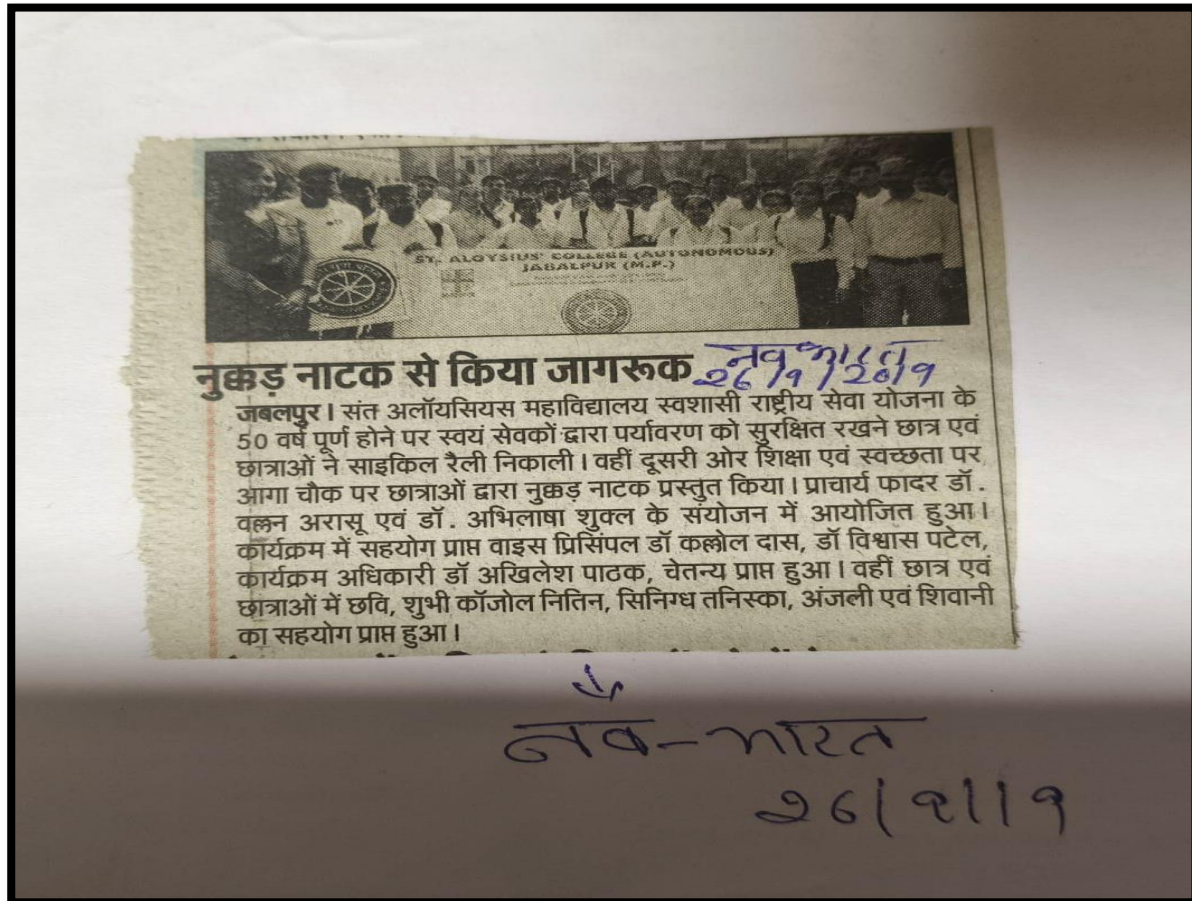 ST. ALOYSIUS' COLLEGE (AUTONOMOUS)
JABALPUR (M.P.)
नुक्कड़ नाटक से किया जागरूक
नव भारत
26/9/2019
जबलपुर। संत अलॉयसियस महाविद्यालय स्वशासी राष्ट्रीय सेवा योजना के
50 वर्ष पूर्ण होने पर स्वयं सेवकों द्वारा पर्यावरण को सुरक्षित रखने छात्र एवं
छात्राओं ने साइकिल रैली निकाली। वहीं दूसरी ओर शिक्षा एवं स्वच्छता पर
आगा चौक पर छात्राओं द्वारा नुक्कड़ नाटक प्रस्तुत किया। प्राचार्य फादर डॉ.
वल्लन अरासू एवं डॉ. अभिलाषा शुक्ल के संयोजन में आयोजित हुआ।
कार्यक्रम में सहयोग प्राप्त वाइस प्रिसिंपल डॉ कल्लोल दास, डॉ विश्वास पटेल,
कार्यक्रम अधिकारी डॉ अखिलेश पाठक, चेतन्य प्राप्त हुआ। वहीं छात्र एवं
छात्राओं में छवि, शुभी कॉजोल नितिन, सिनिग्ध तनिस्का, अंजली एवं शिवानी
का सहयोग प्राप्त हुआ।
नव-भारत